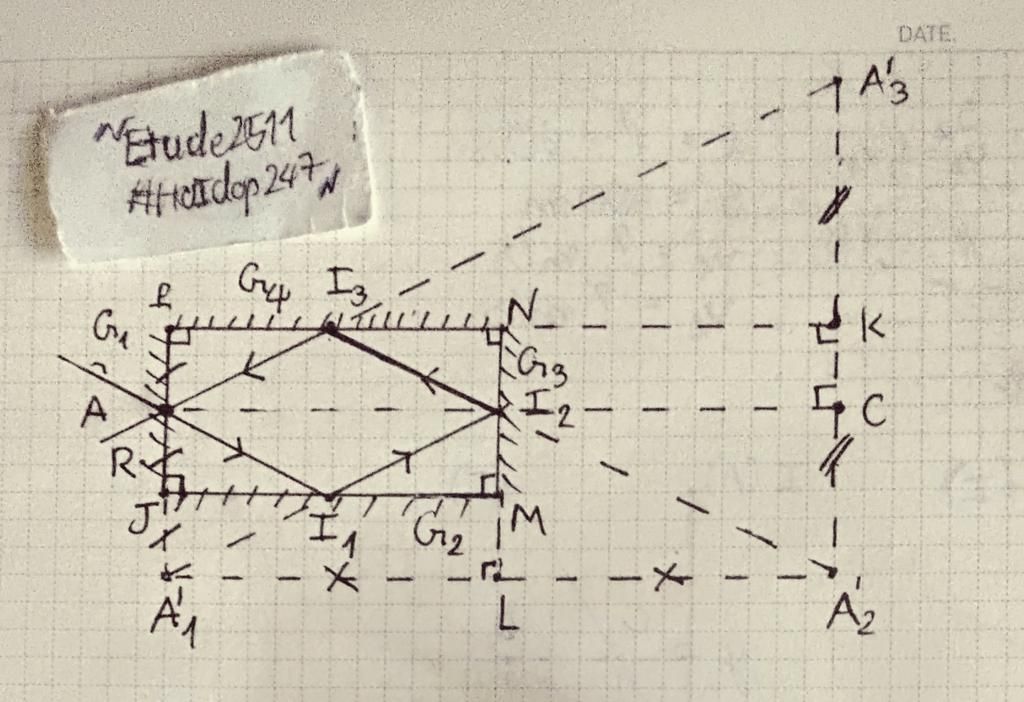 DATE.
"Etude2511
#HoIdap247"
A'3
G4 I3
P N K
G1 G3
A I2 C
R
J I1 G2 M
A'1 L A'2